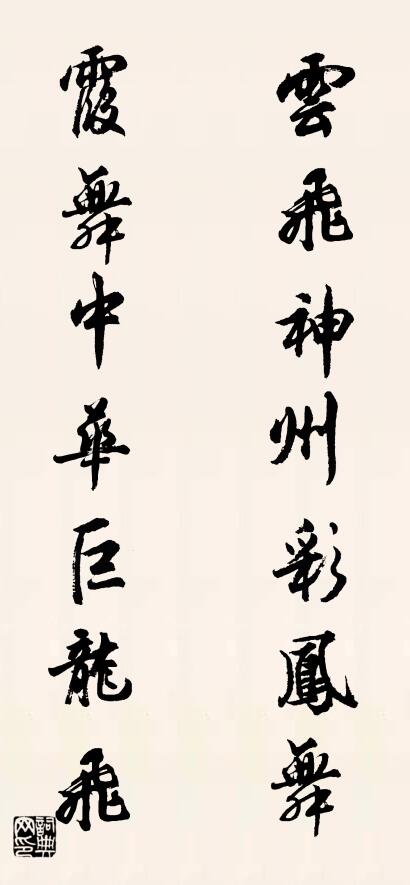 雲飛神州彩鳳舞
霞舞中華巨龍飛
詞典網印